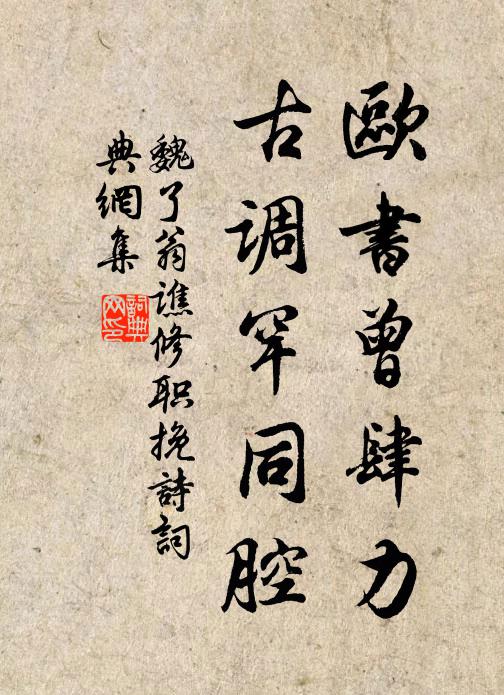 歐書曾肆力
古调罕同腔
魏了翁譙修职挽詩詞
典網集
詞典
网印